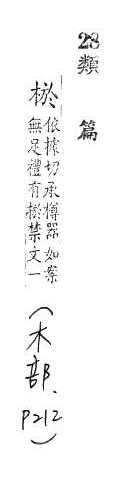 28
類
篇
棜
依據切承樽器如案
無足禮有棜禁文一
(木部、
P212)